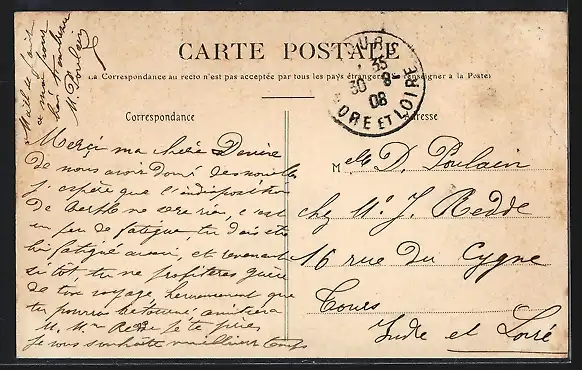 CARTE POSTALE
La Correspondance au recto n'est pas acceptée par tous les pays étrangers (Se renseigner à la Poste)
Correspondance
Adresse
TOURS
35
30 8
08
INDRE ET LOIRE
M. Poulain
Merci ma chère Désirée
de nous avoir donné des nouvelles
j'espère que l'indisposition
de Berthe ne sera rien, c'est
un peu de fatigue, tu dois être
fatigué aussi, et revenant
si tôt tu ne profiteras guère
de ton voyage, heureusement que
tu pourras
M. Mme Redde je te prie
je vous souhaite meilleur temps
Melle D. Poulain
chez Mr J. Redde
16 rue du Cygne
Tours
Indre et Loire